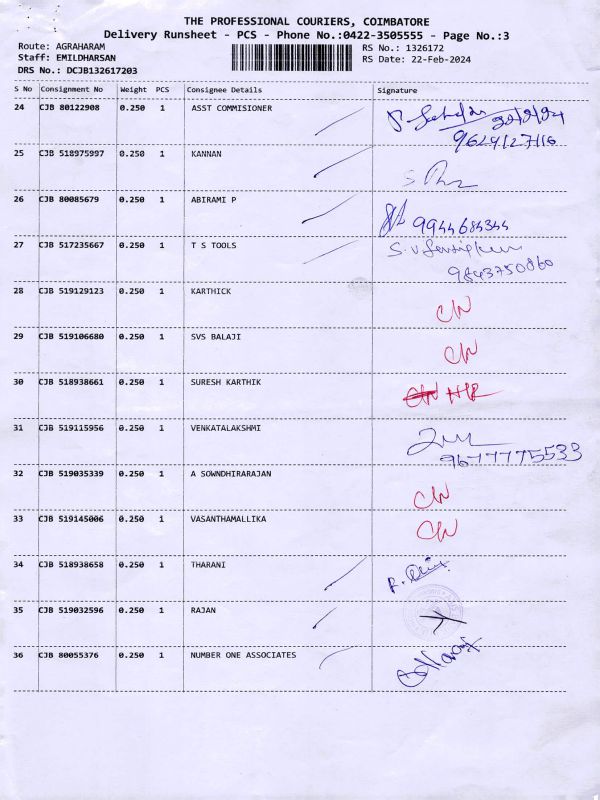 THE PROFESSIONAL COURIERS, COIMBATORE
Delivery Runsheet - PCS - Phone No.:0422-3505555 - Page No.:3
Route: AGRAHARAM RS No.: 1326172
Staff: EMILDHARSAN RS Date: 22-Feb-2024
DRS No.: DCJB132617203
S No Consignment No Weight PCS Consignee Details Signature
24 CJB 80122908 0.250 1 ASST COMMISIONER
9629127116
25 CJB 518975997 0.250 1 KANNAN
26 CJB 80085679 0.250 1 ABIRAMI P
9944684344
27 CJB 517235667 0.250 1 T S TOOLS
9843750860
28 CJB 519129123 0.250 1 KARTHICK
29 CJB 519106680 0.250 1 SVS BALAJI
30 CJB 518938661 0.250 1 SURESH KARTHIK
31 CJB 519115956 0.250 1 VENKATALAKSHMI
9677775533
32 CJB 519035339 0.250 1 A SOWNDHIRARAJAN
33 CJB 519145006 0.250 1 VASANTHAMALLIKA
34 CJB 518938658 0.250 1 THARANI
35 CJB 519032596 0.250 1 RAJAN
36 CJB 80055376 0.250 1 NUMBER ONE ASSOCIATES